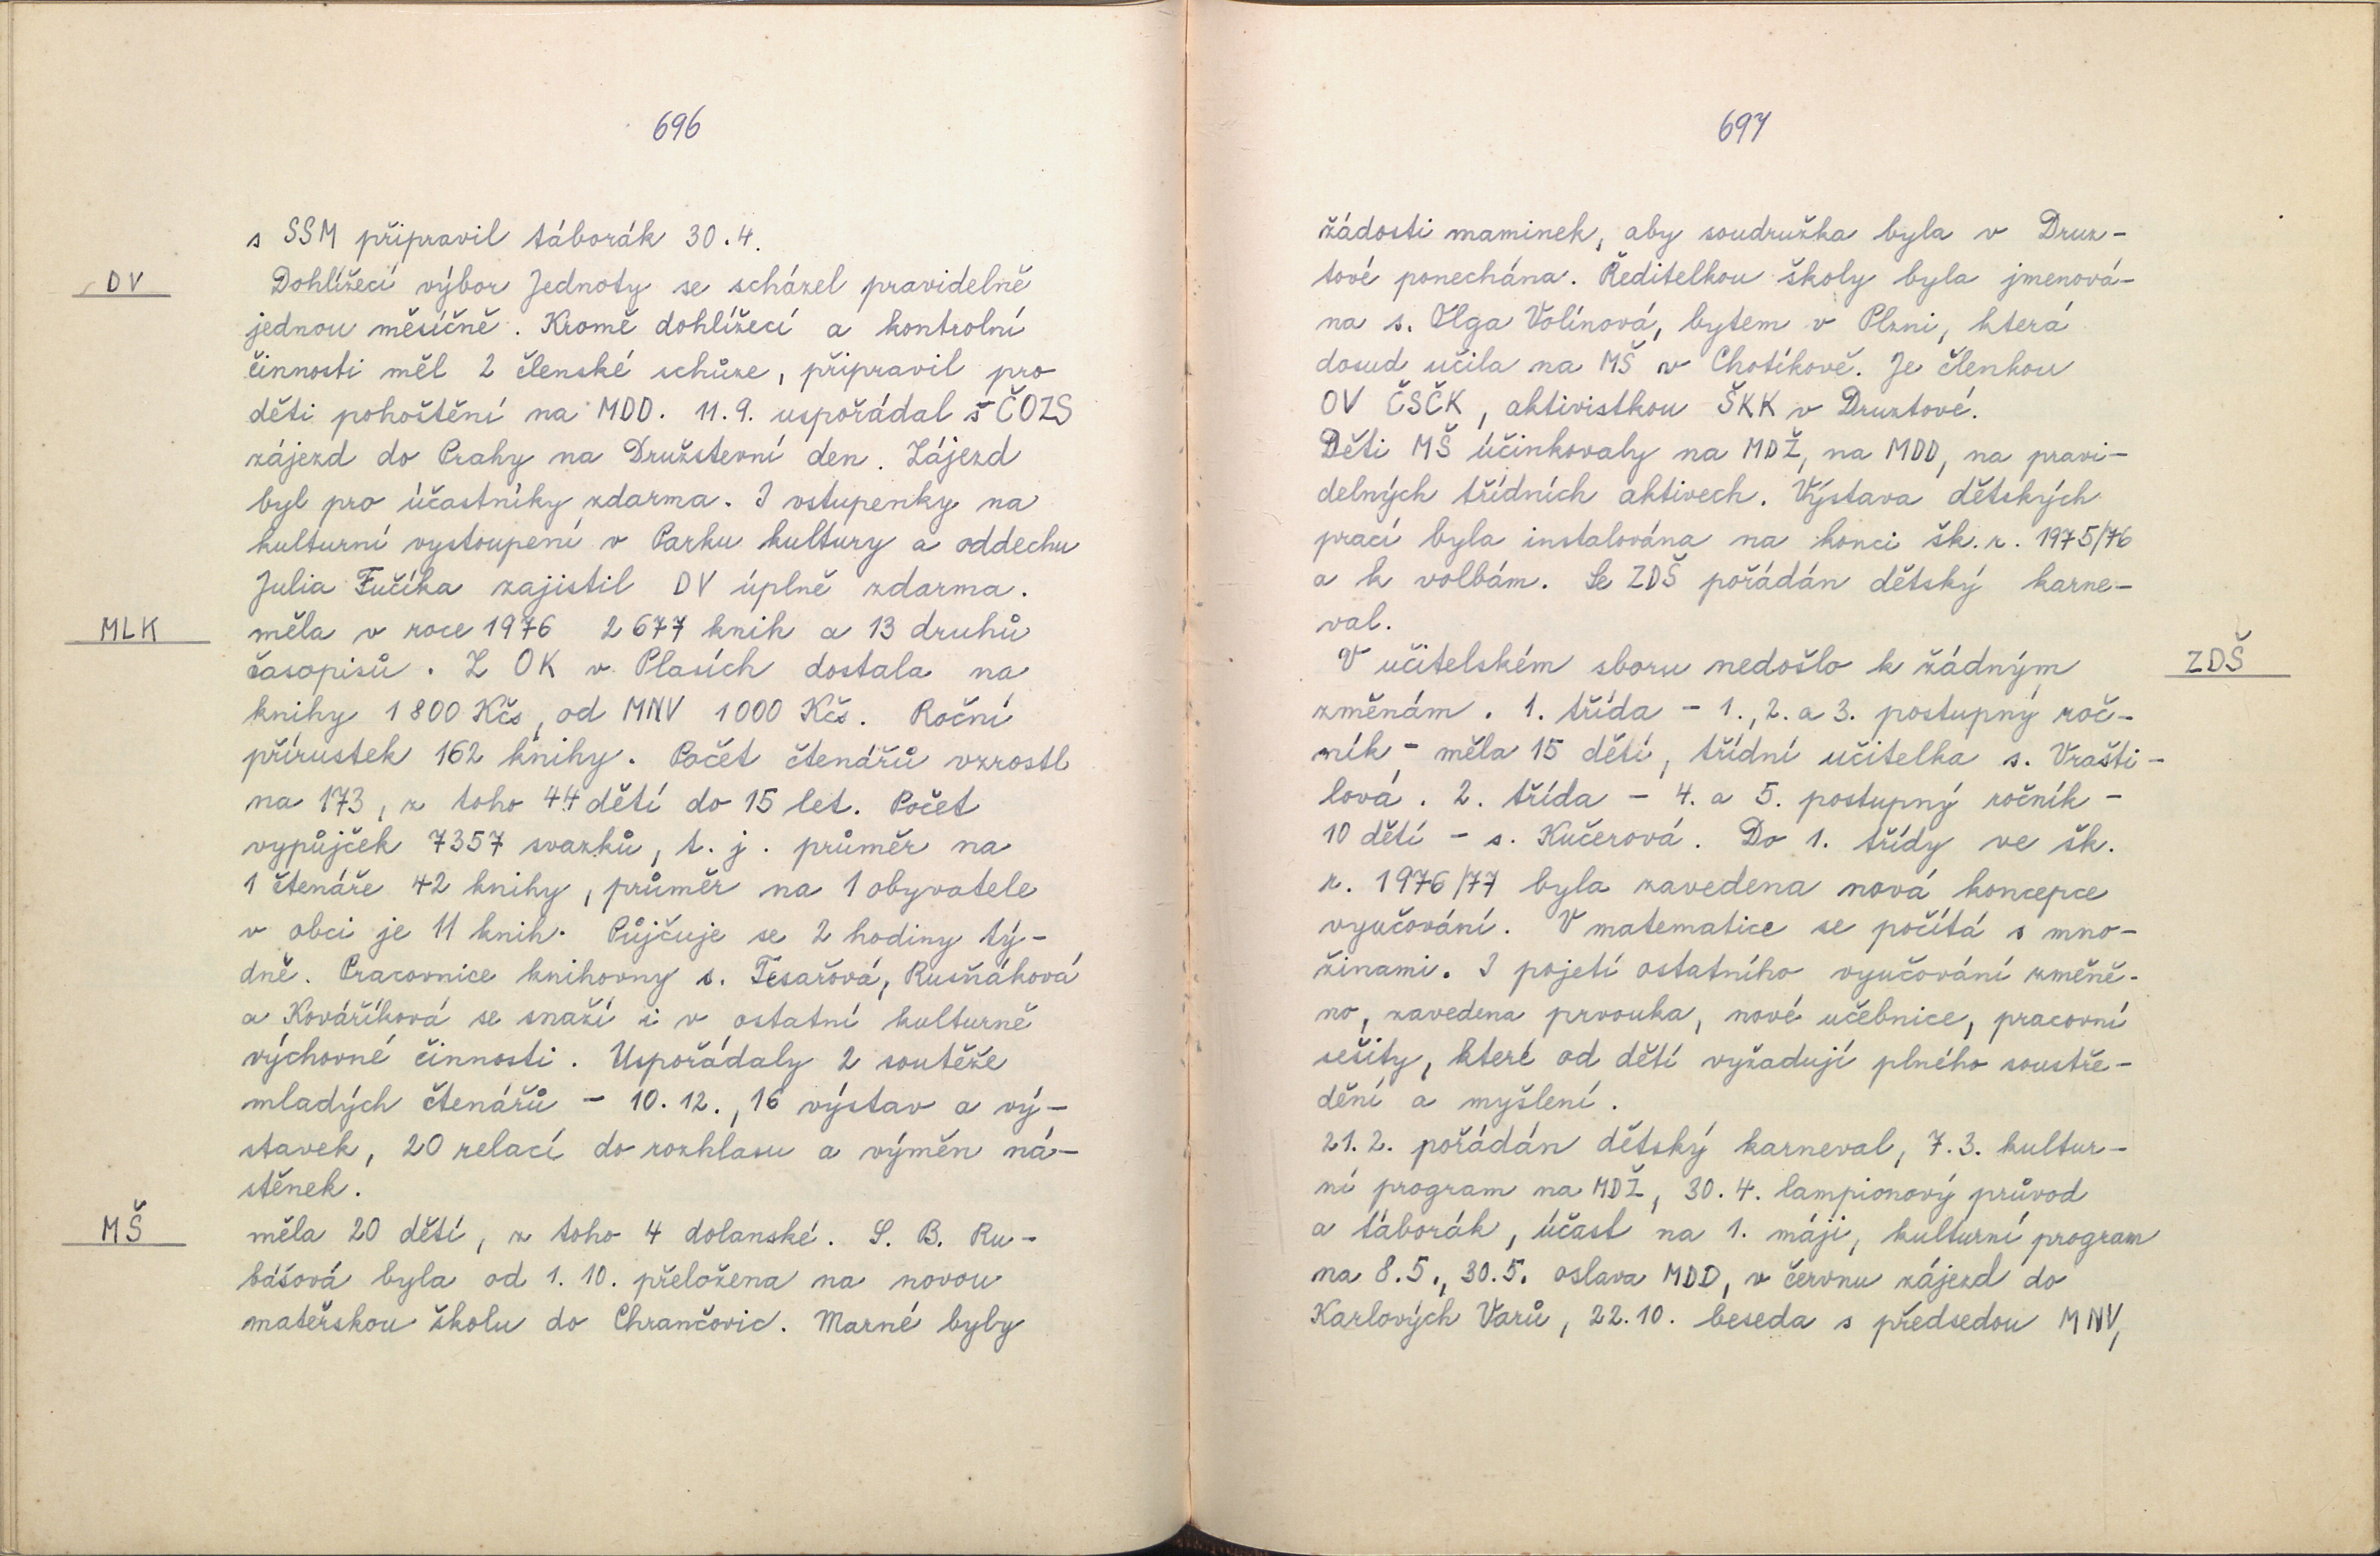 696
s SSM připravil táborák 30.4.
DV
Dohlížecí výbor Jednoty se scházel pravidelně
jednou měsíčně. Kromě dohlížecí a kontrolní
činnosti měl 2 členské schůze, připravil pro
děti pohoštění na MDD. 11.9. uspořádal s ČOZS
zájezd do Prahy na Družstevní den. Zájezd
byl pro účastníky zdarma. I vstupenky na
kulturní vystoupení v Parku kultury a oddechu
Julia Fučíka zajistil DV úplně zdarma.
MLK
měla v roce 1976 2 677 knih a 13 druhů
časopisů. Z OK v Plasích dostala na
knihy 1 800 Kčs, od MNV 1 000 Kčs. Roční
přírustek 162 knihy. Počet čtenářů vzrostl
na 173, z toho 44 dětí do 15 let. Počet
vypůjček 7357 svazků, t. j. průměr na
1 čtenáře 42 knihy, průměr na 1 obyvatele
v obci je 11 knih. Půjčuje se 2 hodiny tý-
dně. Pracovnice knihovny s. Tesařová, Rusňáková
a Kováříková se snaží i v ostatní kulturně
výchovné činnosti. Uspořádaly 2 soutěže
mladých čtenářů - 10. 12., 16 výstav a vý-
stavek, 20 relací do rozhlasu a výměn ná-
stěnek.
MŠ
měla 20 dětí, z toho 4 dolanské. S. B. Ru-
bášová byla od 1. 10. přeložena na novou
mateřskou školu do Chrančovic. Marné byly
697
žádosti maminek, aby soudružka byla v Druz-
tové ponechána. Ředitelkou školy byla jmenová-
na s. Olga Volínová, bytem v Plzni, která
dosud učila na MŠ v Chotíkově. Je členkou
OV ČSČK, aktivistkou ŠKK v Druztové.
Děti MŠ účinkovaly na MDŽ, na MDD, na pravi-
delných třídních aktivech. Výstava dětských
prací byla instalována na konci šk. r. 1975/76
a k volbám. Se ZDŠ pořádán dětský karne-
val.
V učitelském sboru nedošlo k žádným
ZDŠ
změnám. 1. třída - 1., 2. a 3. postupný roč-
ník - měla 15 dětí, třídní učitelka s. Vrašti-
lová. 2. třída - 4. a 5. postupný ročník -
10 dětí - s. Kučerová. Do 1. třídy ve šk.
r. 1976/77 byla zavedena nová koncepce
vyučování. V matematice se počítá s mno-
žinami. I pojetí ostatního vyučování změně-
no, zavedena prvouka, nové učebnice, pracovní
sešity, které od dětí vyžadují plného soustře-
dění a myšlení.
21. 2. pořádán dětský karneval, 7. 3. kultur-
ní program na MDŽ, 30. 4. lampionový průvod
a táborák, účast na 1. máji, kulturní program
na 8. 5., 30. 5. oslava MDD, v červnu zájezd do
Karlových Varů, 22. 10. beseda s předsedou MNV,